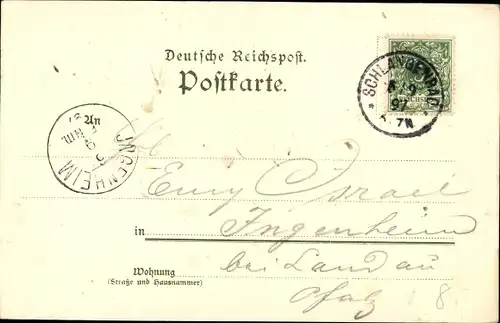 Deutsche Reichspost.
Postkarte.
SCHLANGENBAD
97
7N
An
INGENHEIM
Israel
in Ingenheim
bei Landau
Wohnung
(Straße und Hausnummer)
Pfalz
8